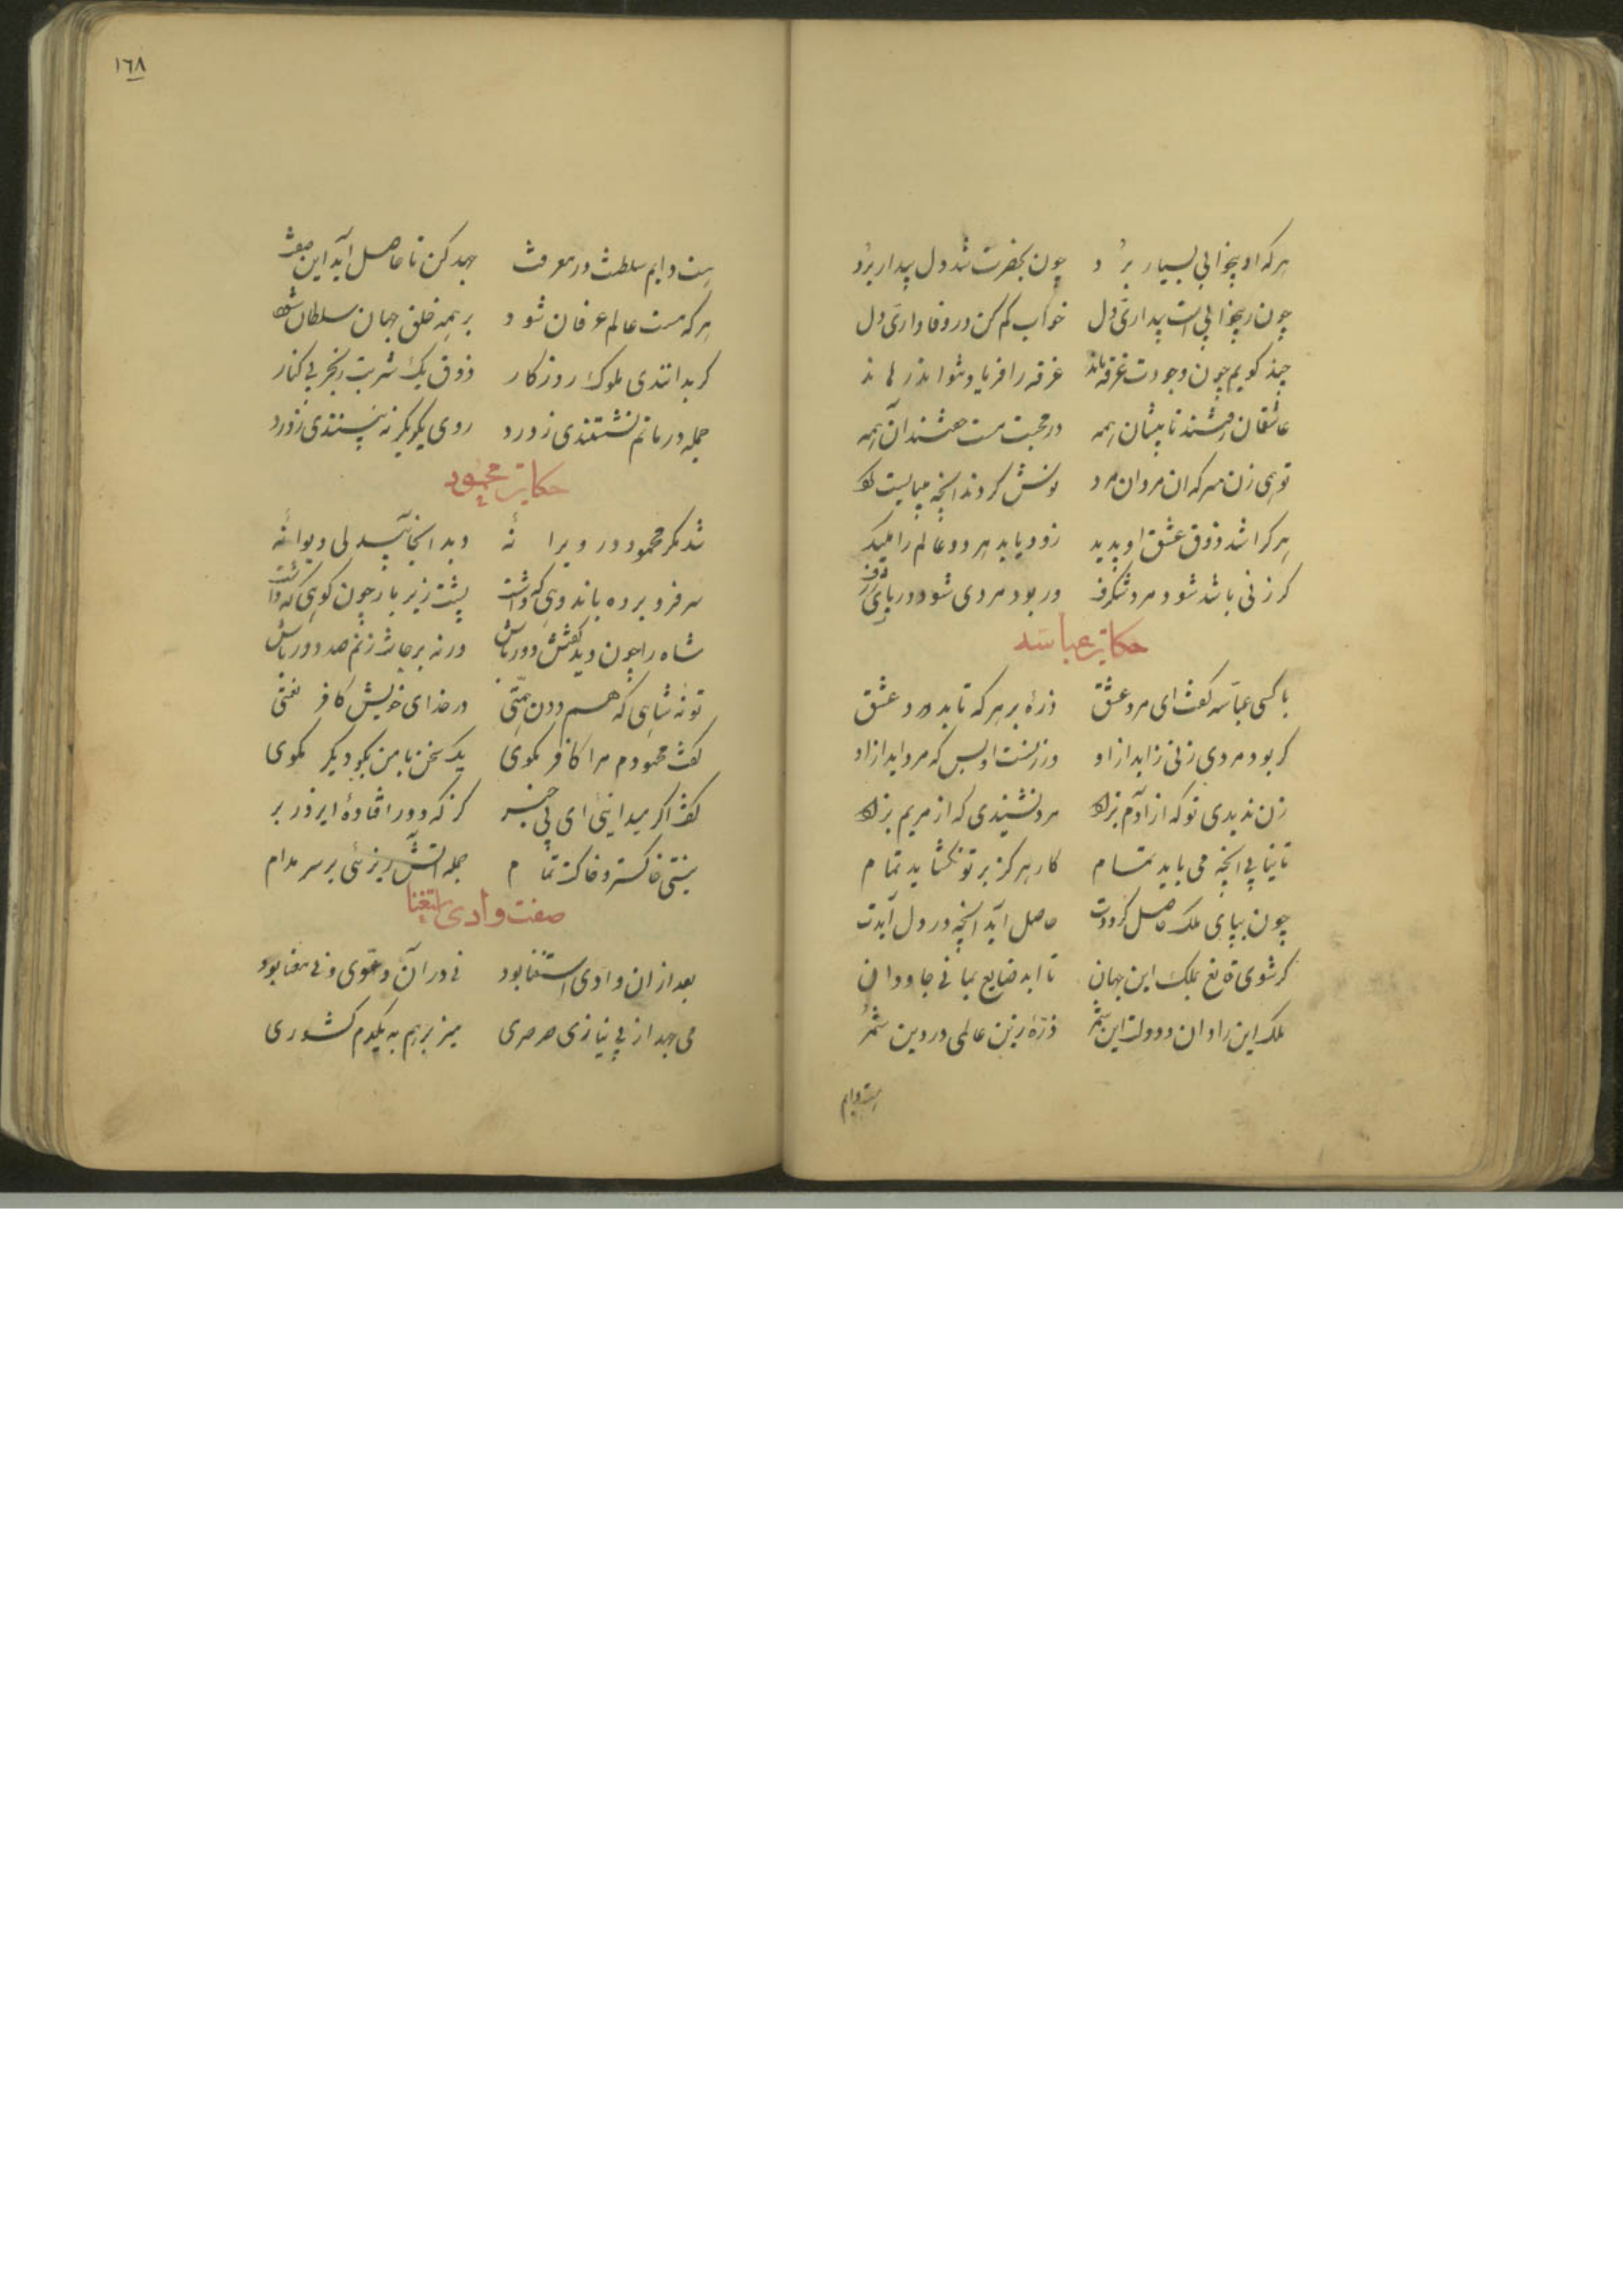 هرکه او بیخوابی بسیار برد چون بحضرت شد دل بیدار برد
چون ز بیخوابی است بیداری دل خواب کم کن در وفاداری دل
چند کویم چون وجودت غرقه ماند غرقه را فریاد نتواند رهاند
عاشقان رفتند تا پیشان همه در محبت مست خفتند آن همه
تو همی زن سر که آن مردان مرد نوش کردند آنچه میبایست کرد
هر کرا شد ذوق عشق او پدید زود یابد هر دو عالم را کلید
کر زنی باشد شود مرد شکرف ور بود مردی شود دریای ژرف
حکایت عباسه
با کسی عباسه کفت ای مرد عشق ذرهٔ بر هرکه تابد درد عشق
کر بود مردی زنی زاید ازو ور زنست او بس که مرد آید ازو
زن ندیدی تو که از آدم بزاد مرد نشنیدی که از مریم بزاد
تا نتابی آنچه می باید تمام کار هرکز بر تو نکشاید تمام
چون بیابی ملک حاصل کرددت حاصل آید آنچه در دل آیدت
کر شوی قانع بملک این جهان تا ابد ضایع بمانی جاودان
ملک این را دان و دولت این شمر ذرهٔ زین عالمی در دین شمر
هست دایم
١٦٨
هست دایم سلطنت در معرفت جهد کن تا حاصل آید این صفت
هرکه مست عالم عرفان شود بر همه خلق جهان سلطان شود
کر بدانندی ملوک روزکار ذوق یک شربت ز بحر بی کنار
جمله در ماتم نشستندی ز درد روی یکدیکر نه بینندی ز درد
حکایت محمود
شد مکر محمود در ویرانهٔ دید آنجا بیدلی دیوانهٔ
سر فرو برده باندوهی که داشت پشت زیر بار چون کوهی که داشت
شاه را چون دید کفتش دور باش ورنه بر جانت زنم صد دور باش
تو نه شاهی که هستی دون همتی در خدای خویش کافر نعمتی
کفت محمودم مرا کافر مکوی یک سخن با من بکو دیکر مکوی
کفت اکر میدانیی ای بی خبر کز که دور افتادهٔ ای زیر و زبر
نیستی خاکستر و خاکت تمام جمله آتش ریزیی بر سر مدام
صفت وادی استغنا
بعد ازان وادی استغنا بود نی در آن دعوی و نی معنا بود
می جهد از بی نیازی صرصری میزند بر هم به یکدم کشوری